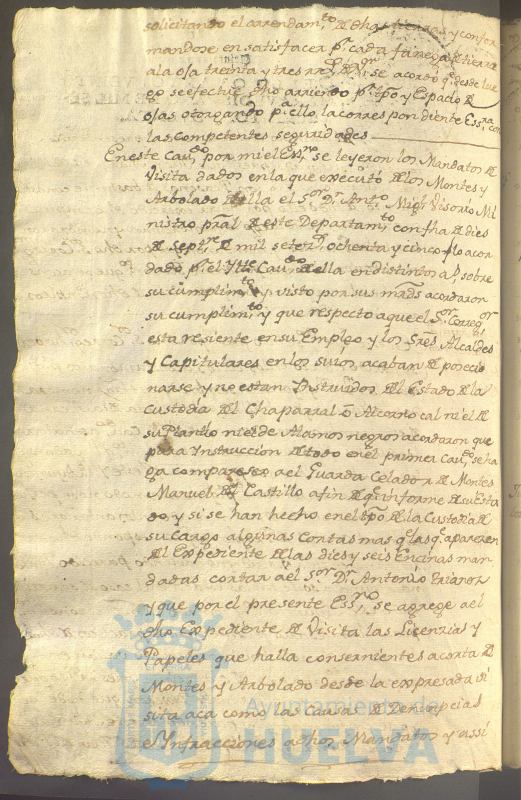 solicitando el arrendam.to de dhas tierras y confor
mandose en satisfacer p.r cada fanega de tierra
a la oja treinta y tres rr.s se acordo q.e desde lue
go se efectue dho arriendo p.r tpo y Espacio de
ojas otorgando p.a ello la correspondiente Ess.ra con
las competentes seguridades
En este Cav.do por mi el Ess.no se leyeron los Mandatos de
Visita dados en la que executó de los Montes y
Arbolado de lla el S.or D.n Ant.o Mig.l Visorio Mi
nistro pral de este Departam.to con fha de dies
de Sept.re de mil seter.s ochenta y cinco y lo acor
dado p.r el Cav.do de ella en distintos a sobre
su cumplim.to y visto por sus mrds acordaron
su cumplim.to y que respecto a que el S.or Correg.or
esta resiente en su Empleo y los Sres Alcaldes
y Capitulares en los suios, acaban de posecio
narse y no estan Instruidos del Estado de la
Custodia del Chaparral ó Alcornocal ni el de
su Plantio ni el de Alamos negros acordaron que
para Instruccion de todo en el primer Cav.do se ha
ga compareser a el Guarda Celador de Montes
Manuel del Castillo a fin de q.e informe de su Esta
do, y si se han hecho en el tpo de la Custodia de
su Cargo algunas Cortas mas q.e las q.e aparecen
del Expediente de las dies y seis Encinas man
dadas cortar a el S.or D.n Antonio Trianos
y que por el presente Ess.no se agrege a el
dho Expediente de Visita las Licenzias y
Papeles que halla consernientes a corta de
Montes y Arbolado desde la expresada vi
sita aca como las Causas de Denunpcias
e Infracciones a dhos Mandatos y assi
Ayuntamiento de
HUELVA